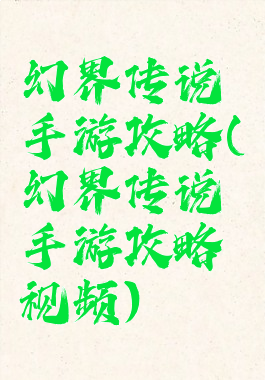 幻界传说
手游攻略(
幻界传说
手游攻略
视频)